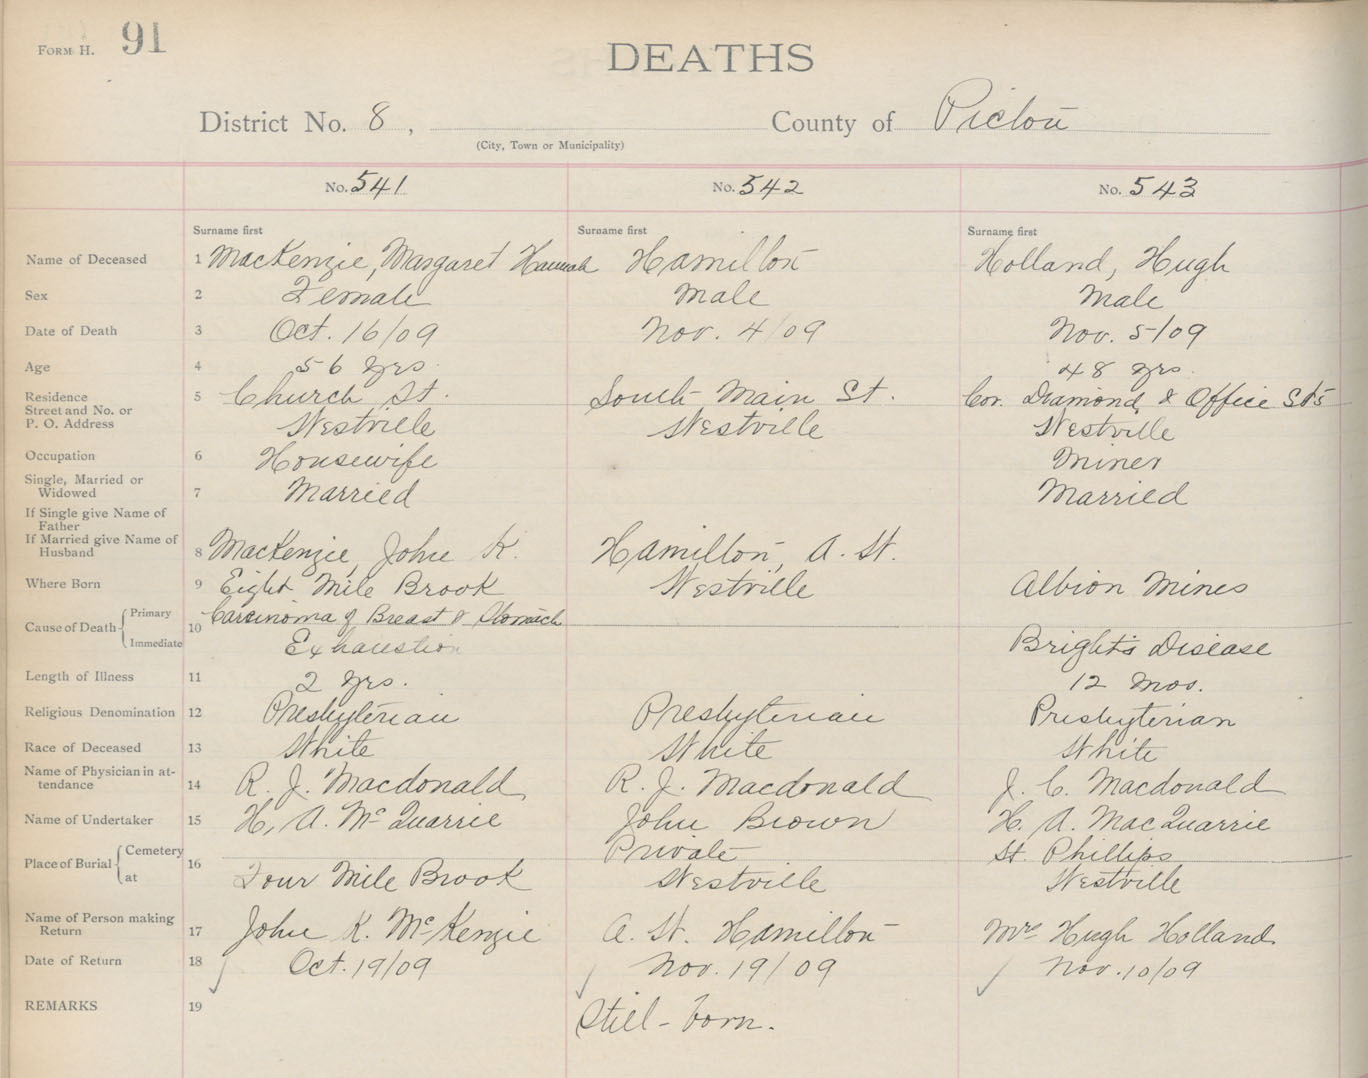 FORM H. 91
DEATHS
District No. 8, County of Pictou
(City, Town or Municipality)
No. 541 No. 542 No. 543
Surname first Surname first Surname first
Name of Deceased 1 MacKenzie, Margaret Hannah Hamilton Holland, Hugh
Sex 2 Female Male Male
Date of Death 3 Oct. 16/09 Nov. 4/09 Nov. 5/09
Age 4 56 yrs. 48 yrs.
Residence 5 Church St. South Main St. Cor. Diamond & Office Sts
Street and No. or
P. O. Address Westville Westville Westville
Occupation 6 Housewife Miner
Single, Married or
Widowed 7 Married Married
If Single give Name of
Father
If Married give Name of
Husband 8 MacKenzie, John K. Hamilton, A. W.
Where Born 9 Eight Mile Brook Westville Albion Mines
Cause of Death Primary Carcinoma of Breast & Stomach
10
Immediate Exhaustion Bright's Disease
Length of Illness 11 2 yrs. 12 mos.
Religious Denomination 12 Presbyterian Presbyterian Presbyterian
Race of Deceased 13 White White White
Name of Physician in at-
tendance 14 R. J. Macdonald R. J. Macdonald J. C. Macdonald
Name of Undertaker 15 H. A. McQuarrie John Brown H. A. MacQuarrie
Place of Burial Cemetery 16 Private St. Phillips
at Four Mile Brook Westville Westville
Name of Person making
Return 17 John K. McKenzie A. W. Hamilton Mrs Hugh Holland
Date of Return 18 Oct. 19/09 Nov. 19/09 Nov. 10/09
REMARKS 19 Still-born.